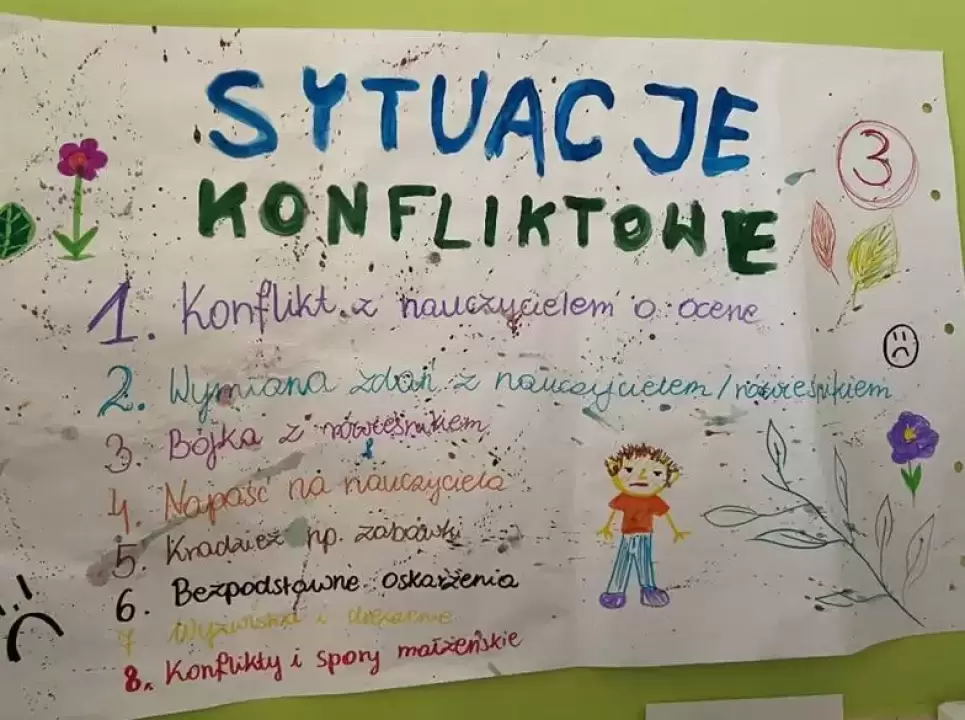 SYTUACJE
3
KONFLIKTOWE
1. Konflikt z nauczycielem o ocenę
2. Wymiana zdań z nauczycielem/rówieśnikiem
3. Bójka z rówieśnikiem
4. Napaść na nauczyciela
5. Kradzież np. zabawki
6. Bezpodstawne oskarżenia
7 Wyzwiska i
8. Konflikty i spory małżeńskie